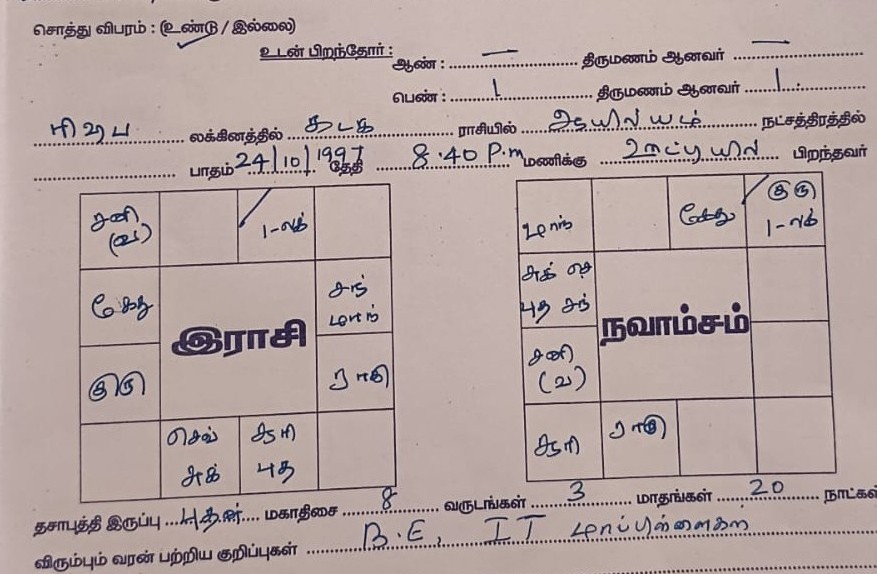 சொத்து விபரம் : (உண்டு / இல்லை)
உடன் பிறந்தோர் : ஆண் : — திருமணம் ஆனவர் —
பெண் : 1 திருமணம் ஆனவர் 1
ரிஷப லக்கினத்தில் கடக ராசியில் ஆயில்யம் நட்சத்திரத்தில்
பாதம் 24/10/1997 தேதி 8.40 P.m மணிக்கு பிறந்தவர்
சனி (வ) 1-லக்
கேது சந் மாந்
இராசி
குரு ராகு
செவ் சுக் சூரி புத
மாந் கேது குரு 1-லக்
சுக் செ புத சந்
நவாம்சம்
சனி (வ)
சூரி ராகு
தசாபுத்தி இருப்பு புதன் மகாதிசை 8 வருடங்கள் 3 மாதங்கள் 20 நாட்கள்
விரும்பும் வரன் பற்றிய குறிப்புகள் B.E, IT மாப்பிள்ளைகள்